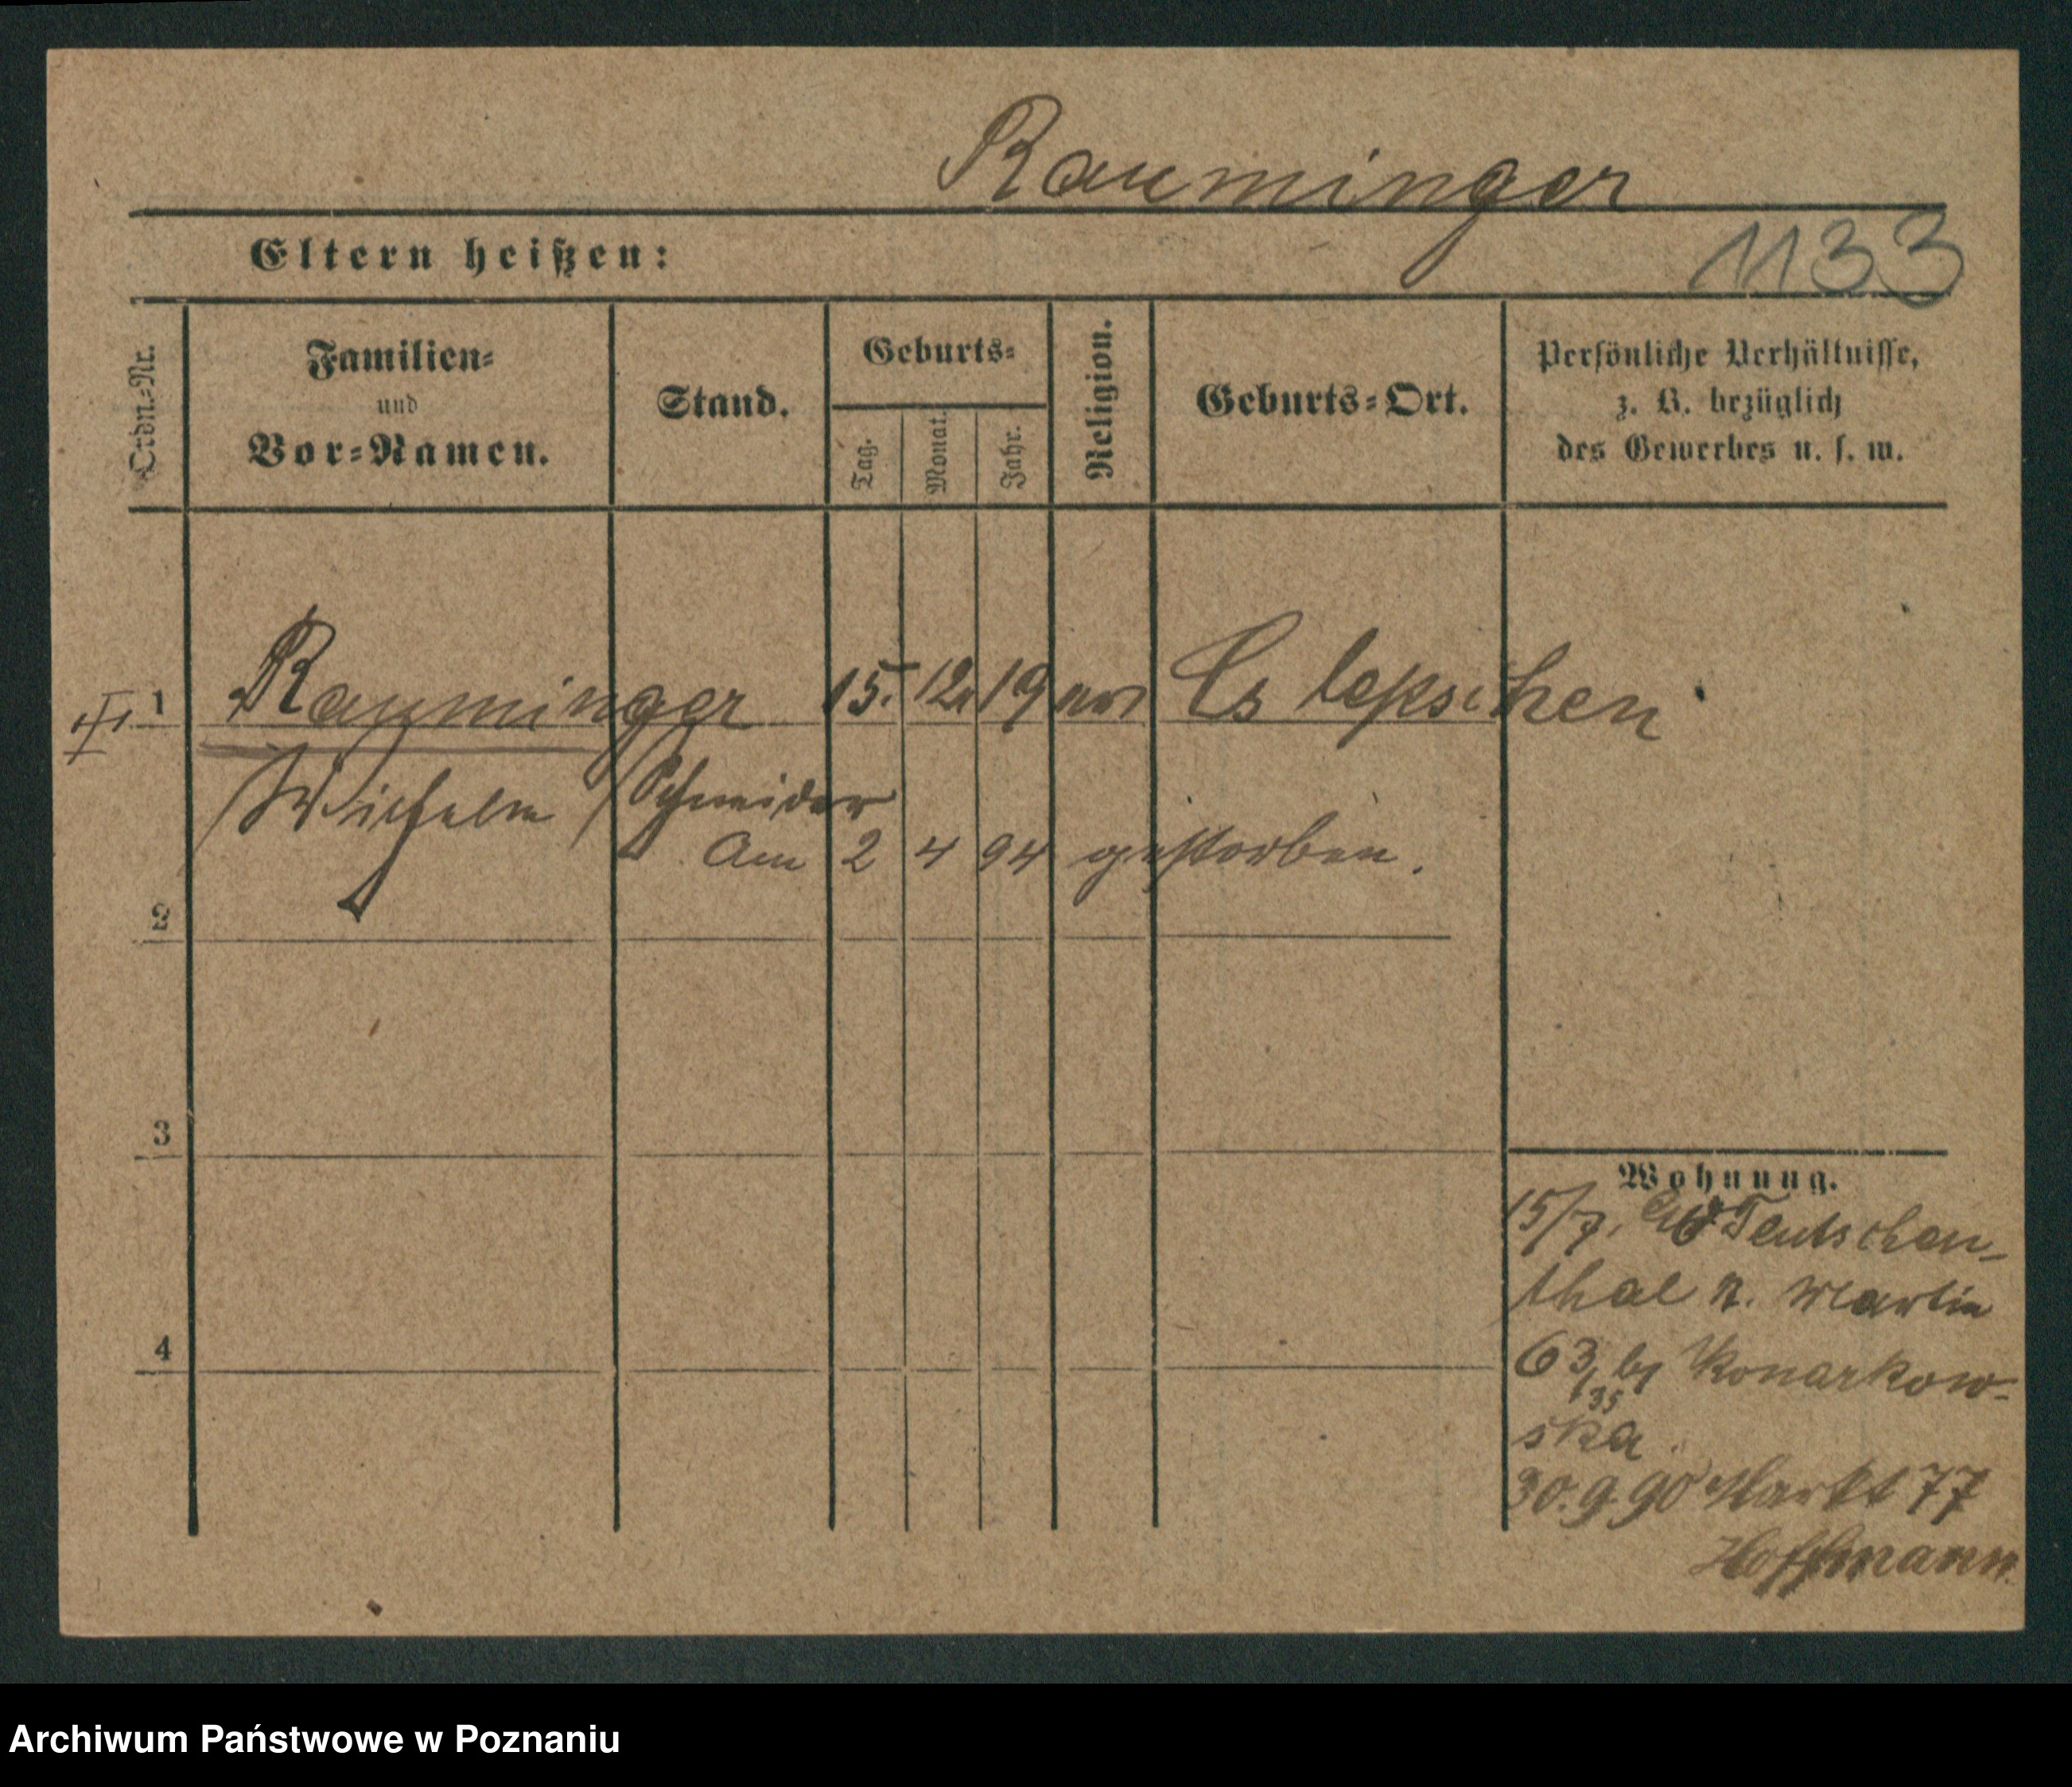 Rauminger
Eltern heißen:
1133
Ordn.-Nr.
Familien-
und
Vor-Namen.
Stand.
Geburts-
Tag.
Monat.
Jahr.
Religion.
Geburts-Ort.
Persönliche Verhältnisse,
z. B. bezüglich
des Gewerbes u. s. w.
1 Rauminger 15. 12. 19
Wilhelm Schneider
Am 2 4 94 gestorben.
2
3
4
Wohnung.
15/7. Teutschen-
thal n. Martin
63, by Konarkow-
135
ska.
30.9.90 Markt 77
Hoffmann.
Archiwum Państwowe w Poznaniu